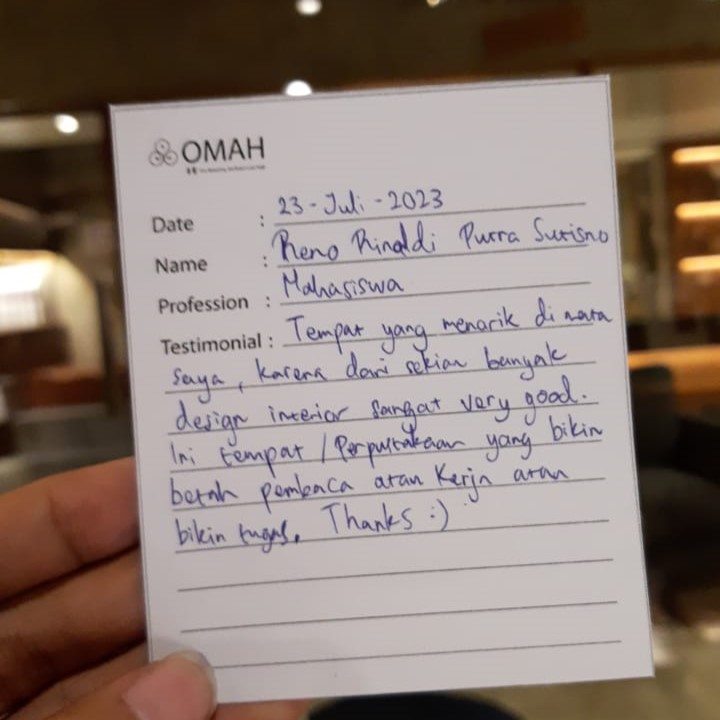 OMAH
Date : 23 - Juli - 2023
Name : Reno Rinaldi Putra Sutisno
Profession : Mahasiswa
Testimonial : Tempat yang menarik di mata
saya, karena dari sekian banyak
design interior sangat very good.
Ini tempat / Perpustakaan yang bikin
betah pembaca atau Kerja atau
bikin tugas. Thanks :)